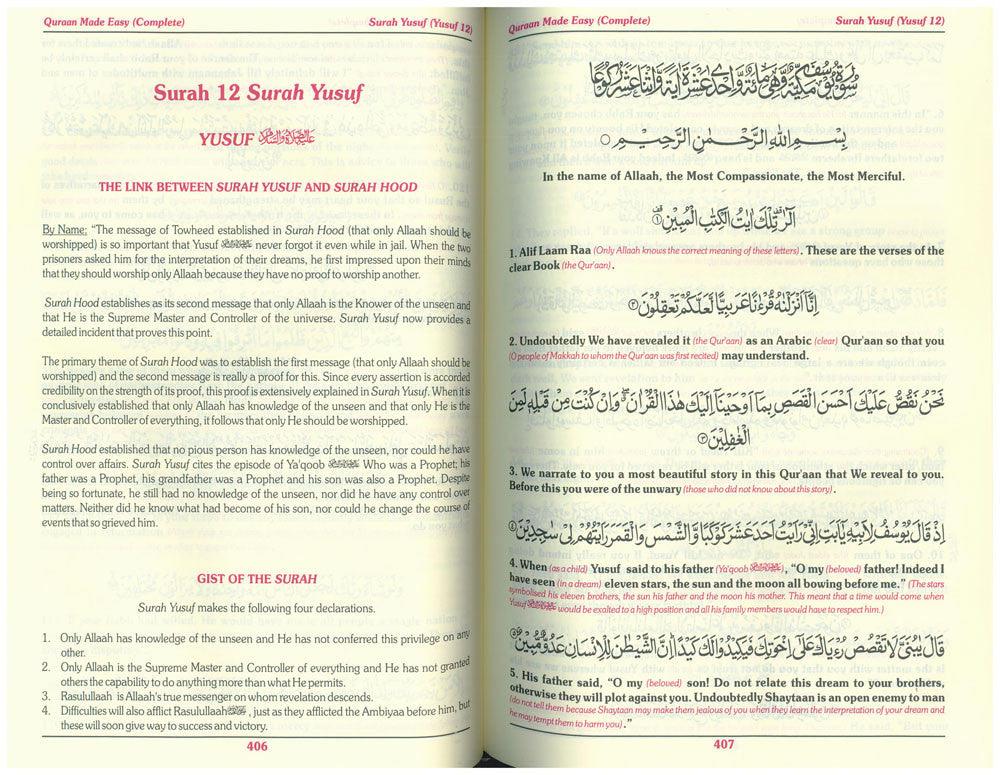 Quraan Made Easy (Complete) Surah Yusuf (Yusuf 12)
Surah 12 Surah Yusuf
YUSUF
THE LINK BETWEEN SURAH YUSUF AND SURAH HOOD
By Name: “The message of Towheed established in Surah Hood (that only Allaah should be
worshipped) is so important that Yusuf never forgot it even while in jail. When the two
prisoners asked him for the interpretation of their dreams, he first impressed upon their minds
that they should worship only Allaah because they have no proof to worship another.
Surah Hood establishes as its second message that only Allaah is the Knower of the unseen and
that He is the Supreme Master and Controller of the universe. Surah Yusuf now provides a
detailed incident that proves this point.
The primary theme of Surah Hood was to establish the first message (that only Allaah should be
worshipped) and the second message is really a proof for this. Since every assertion is accorded
credibility on the strength of its proof, this proof is extensively explained in Surah Yusuf. When it is
conclusively established that only Allaah has knowledge of the unseen and that only He is the
Master and Controller of everything, it follows that only He should be worshipped.
Surah Hood established that no pious person has knowledge of the unseen, nor could he have
control over affairs. Surah Yusuf cites the episode of Ya'qoob Who was a Prophet; his
father was a Prophet, his grandfather was a Prophet and his son was also a Prophet. Despite
being so fortunate, he still had no knowledge of the unseen, nor did he have any control over
matters. Neither did he know what had become of his son, nor could he change the course of
events that so grieved him.
GIST OF THE SURAH
Surah Yusuf makes the following four declarations.
1. Only Allaah has knowledge of the unseen and He has not conferred this privilege on any
other.
2. Only Allaah is the Supreme Master and Controller of everything and He has not granted
others the capability to do anything more than what He permits.
3. Rasulullaah is Allaah's true messenger on whom revelation descends.
4. Difficulties will also afflict Rasulullaah , just as they afflicted the Ambiyaa before him, but
these will soon give way to success and victory.
406
Quraan Made Easy (Complete) Surah Yusuf (Yusuf 12)
سُوْرَةُ يُوْسُفَ مَكِّيَّةٌ وَّهِيَ مِائَةٌ وَّاِحْدٰى عَشَرَةَ اٰيَةً وَّاثْنَا عَشَرَ رُكُوْعًا
بِسْمِ اللّٰهِ الرَّحْمٰنِ الرَّحِيْمِ
In the name of Allaah, the Most Compassionate, the Most Merciful.
الٓرٰ تِلْكَ اٰيٰتُ الْكِتٰبِ الْمُبِيْنِ ۝۱
1. Alif Laam Raa (Only Allaah knows the correct meaning of these letters). These are the verses of the
clear Book (the Qur'aan).
اِنَّآ اَنْزَلْنٰهُ قُرْءٰنًا عَرَبِيًّا لَّعَلَّكُمْ تَعْقِلُوْنَ ۝۲
2. Undoubtedly We have revealed it (the Qur'aan) as an Arabic (clear) Qur'aan so that you
(O people of Makkah to whom the Qur'aan was first recited) may understand.
نَحْنُ نَقُصُّ عَلَيْكَ اَحْسَنَ الْقَصَصِ بِمَآ اَوْحَيْنَآ اِلَيْكَ هٰذَا الْقُرْاٰنَ ۖ وَاِنْ كُنْتَ مِنْ قَبْلِهٖ لَمِنَ
الْغٰفِلِيْنَ ۝۳
3. We narrate to you a most beautiful story in this Qur'aan that We reveal to you.
Before this you were of the unwary (those who did not know about this story).
اِذْ قَالَ يُوْسُفُ لِاَبِيْهِ يٰٓاَبَتِ اِنِّيْ رَاَيْتُ اَحَدَ عَشَرَ كَوْكَبًا وَّالشَّمْسَ وَالْقَمَرَ رَاَيْتُهُمْ لِيْ سٰجِدِيْنَ ۝۴
4. When (as a child) Yusuf said to his father (Ya'qoob ), “O my (beloved) father! Indeed I
have seen (in a dream) eleven stars, the sun and the moon all bowing before me.” (The stars
symbolised his eleven brothers, the sun his father and the moon his mother. This meant that a time would come when
Yusuf would be exalted to a high position and all his family members would have to respect him.)
قَالَ يٰبُنَيَّ لَا تَقْصُصْ رُءْيَاكَ عَلٰٓى اِخْوَتِكَ فَيَكِيْدُوْا لَكَ كَيْدًا ۗ اِنَّ الشَّيْطٰنَ لِلْاِنْسَانِ عَدُوٌّ مُّبِيْنٌ ۝۵
5. His father said, “O my (beloved) son! Do not relate this dream to your brothers,
otherwise they will plot against you. Undoubtedly Shaytaan is an open enemy to man
(do not tell them because Shaytaan may make them jealous of you when they learn the interpretation of your dream and
he may tempt them to harm you).”
407